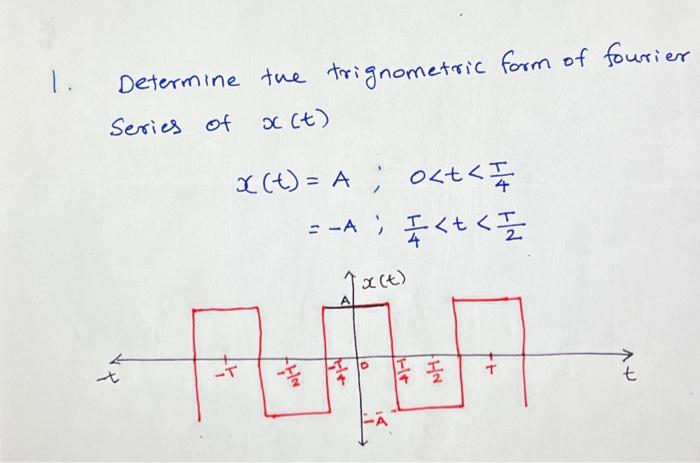 1. Determine the trignometric form of fourier
Series of x(t)
x(t) = A ; 0<t<T/4
= -A ; T/4 <t < T/2
x(t)
A
-t -T -T/2 -T/4 0 T/4 T/2 T t
-A